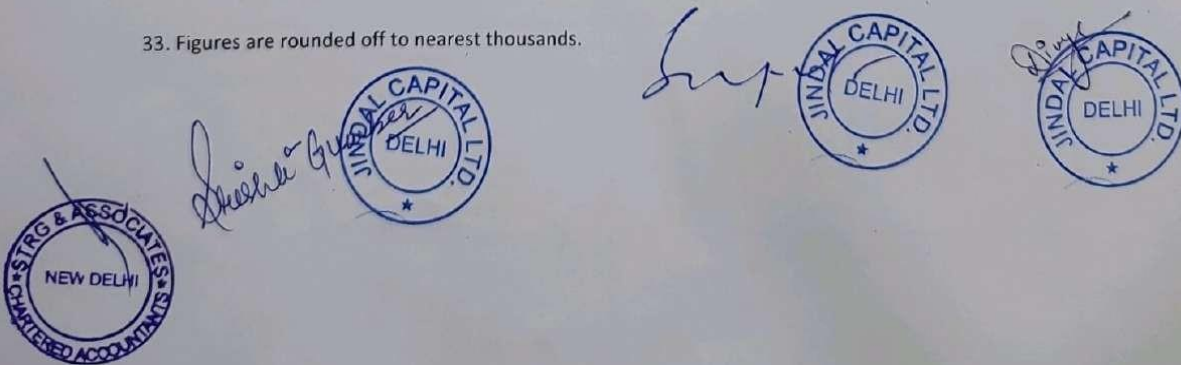 33. Figures are rounded off to nearest thousands.
JINDAL CAPITAL LTD.
DELHI
JINDAL CAPITAL LTD.
DELHI
Divya
JINDAL CAPITAL LTD.
DELHI
STRG & ASSOCIATES
NEW DELHI
CHARTERED ACCOUNTANTS